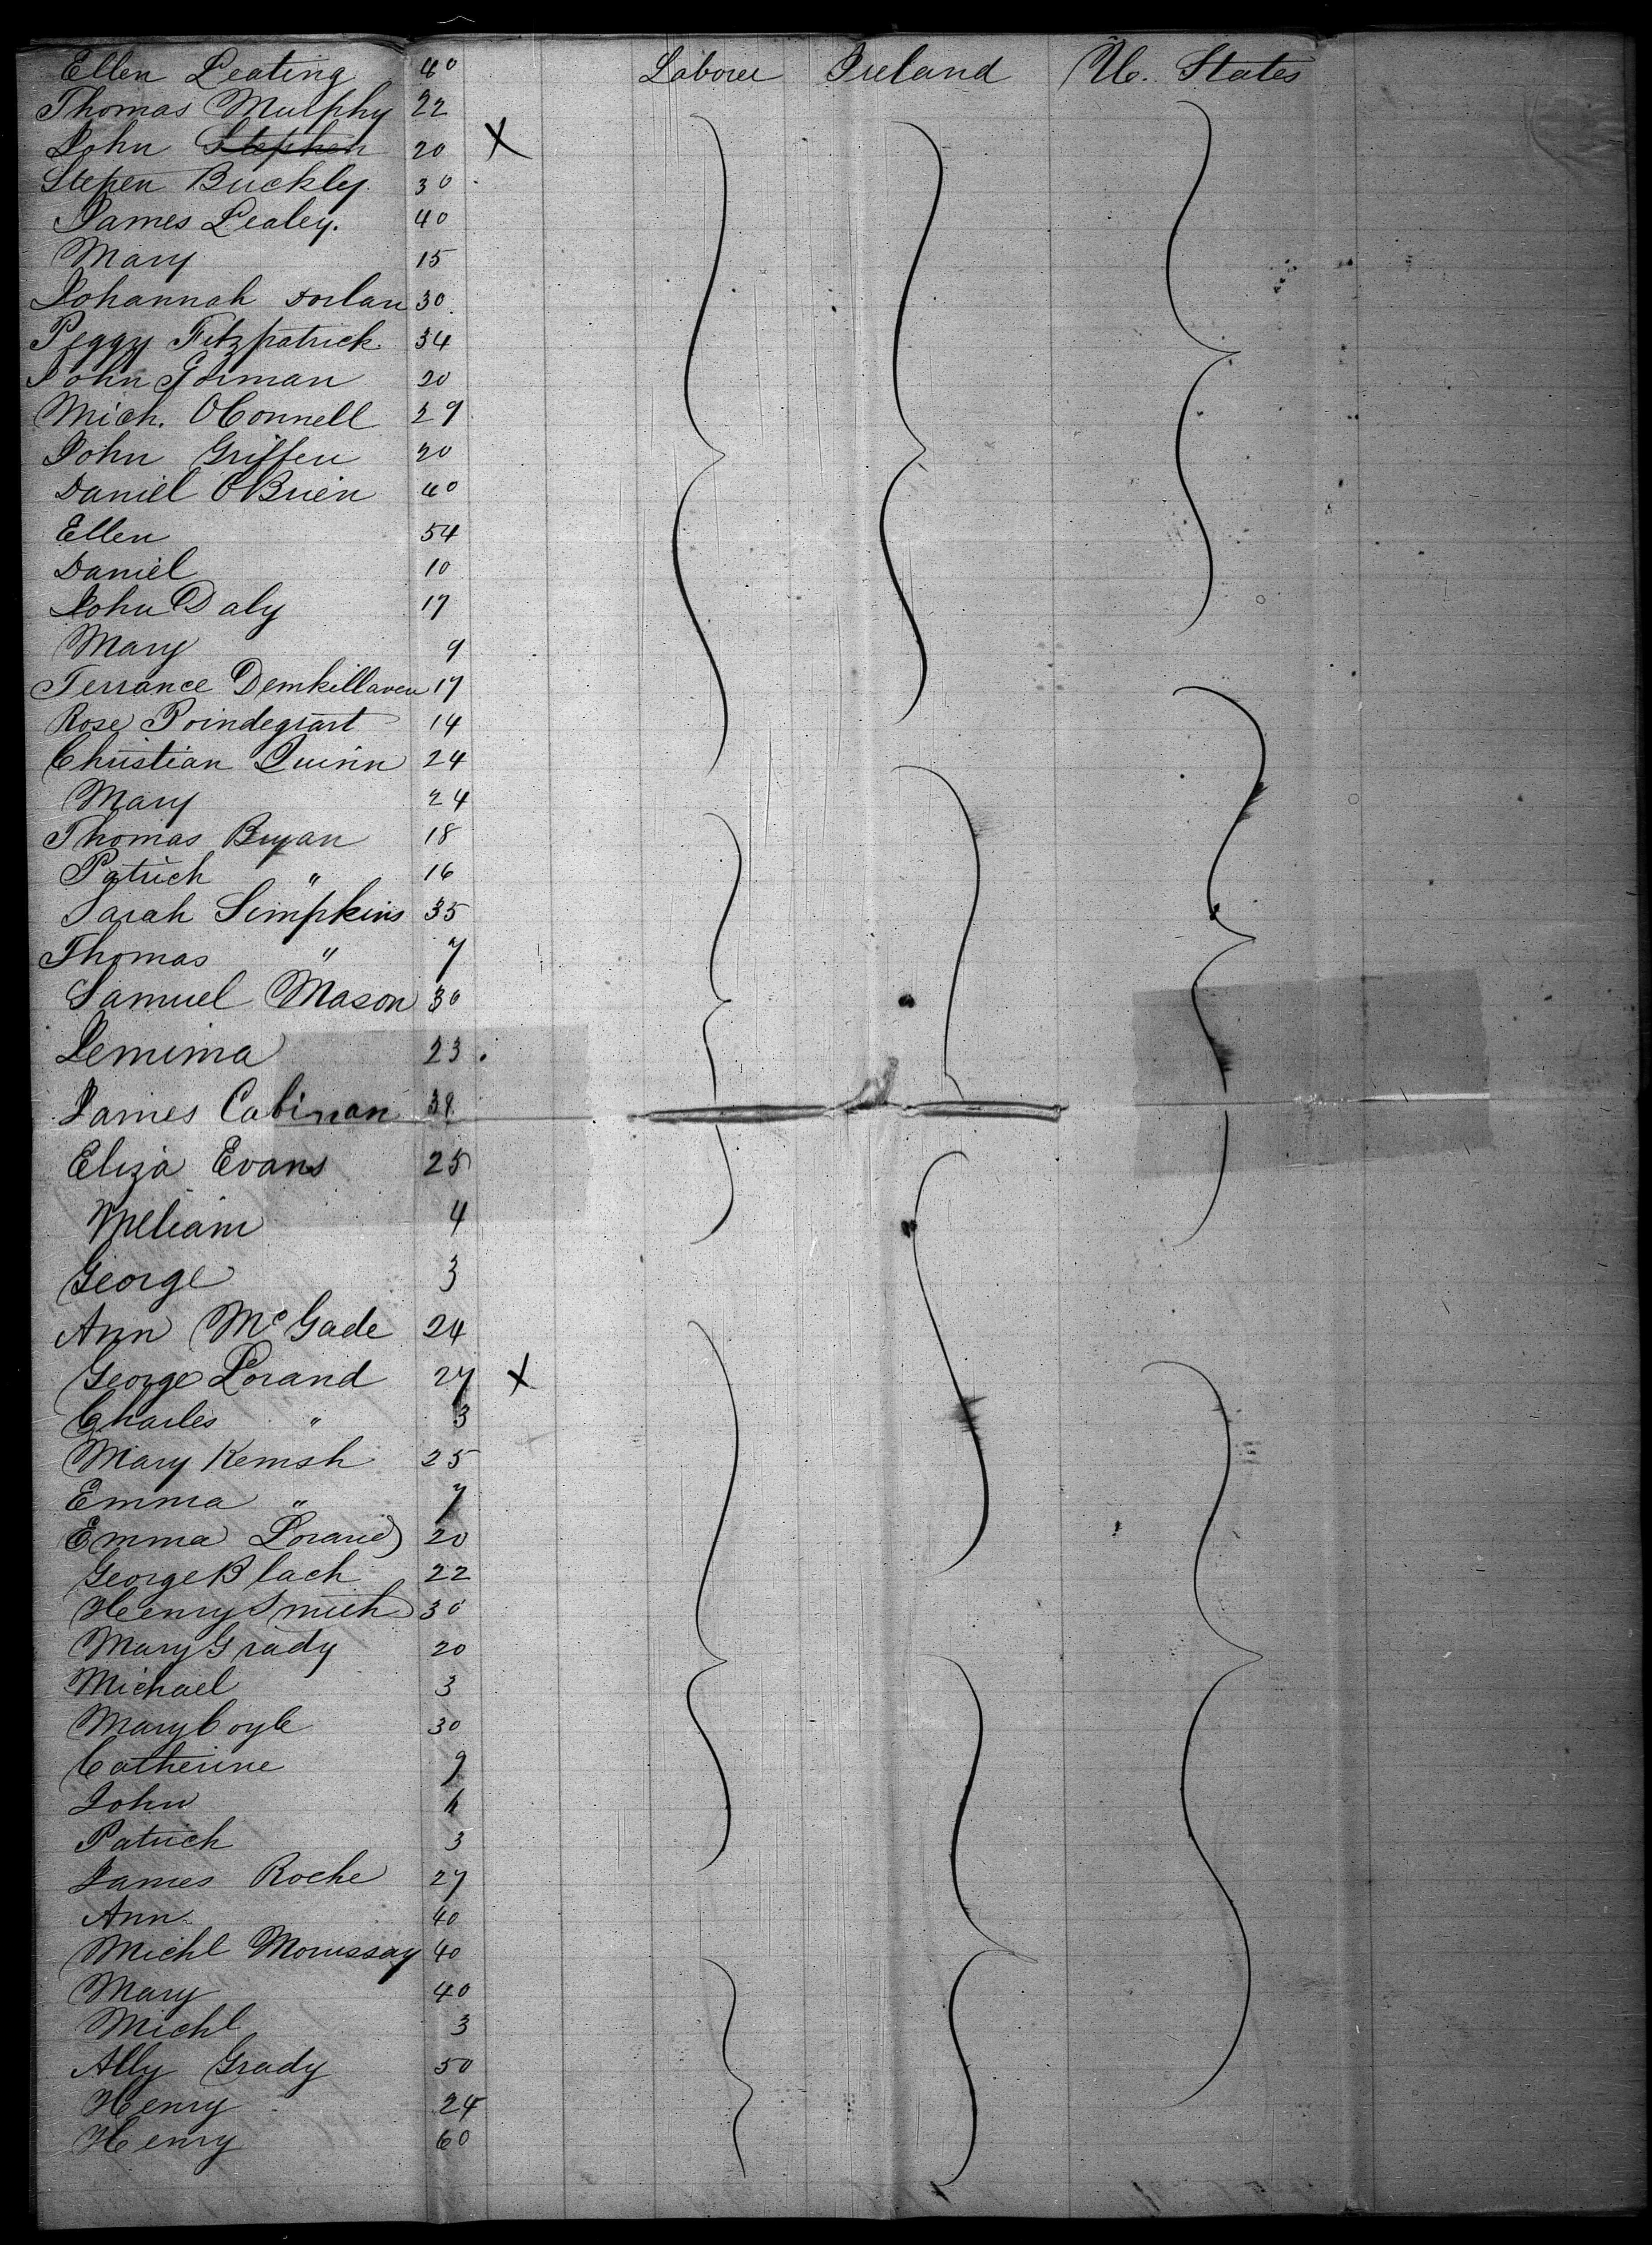 Ellen Leating 40 Laborer Ireland U. States
Thomas Murphy 22
John Stephen 20 X
Stepen Buckley. 30
James Lealey. 40
Mary 15
Johannah Dorlan 30
Peggy Fitzpatrick 34
John Gorman 20
Mich. OConnell 29
John Griffen 20
Daniel OBrien 40
Ellen 54
Daniel 10
John Daly 17
Mary 9
Terrance Demkillaven 17
Rose Poindegrart 14
Christian Quinn 24
Mary 24
Thomas Bryan 18
Patrick " 16
Sarah Simpkins 35
Thomas " 7
Samuel Mason 30
Jemima 23
James Cabinan 38
Eliza Evans 25
William 4
George 3
Ann McGade 24
George Lorand 27 X
Charles " 3
Mary Kemsh 25
Emma " 7
Emma Lorand 20
George Blach 22
Henry Smith 30
Mary Grady 20
Michael 3
Mary Coyle 30
Catherine 9
John
Patrick 3
James Roche 27
Ann 40
Michl Morrissay 40
Mary 40
Michl 3
Ally Grady 50
Henry 24
Henry 60